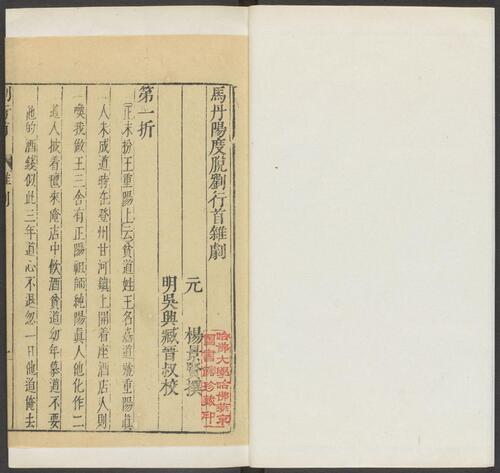 馬丹陽度脫劉行首雜劇
元　楊景賢撰
明吳興臧晉叔校
哈佛大學哈佛燕京
圖書館珍藏印
第一折
正末扮王重陽上云貧道姓王名嚞道號重陽眞
人未成道時在登州甘河鎭上開着座酒店人則
喚我做王三舍有正陽祖師純陽眞人他化作二
道人披着氊來俺店中飲酒貧道幼年慕道不要
他的酒錢似此三年道心不退忽一日他道俺去
劉行首　雜劇　一